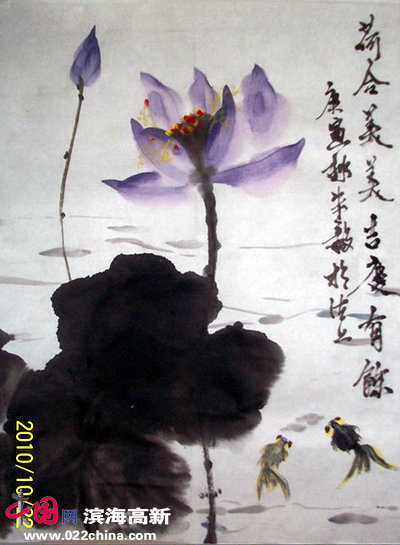 荷合美美吉慶有餘
庚寅秋朱敏於沽上
2010/10/22
中国网 滨海高新
www.022china.com